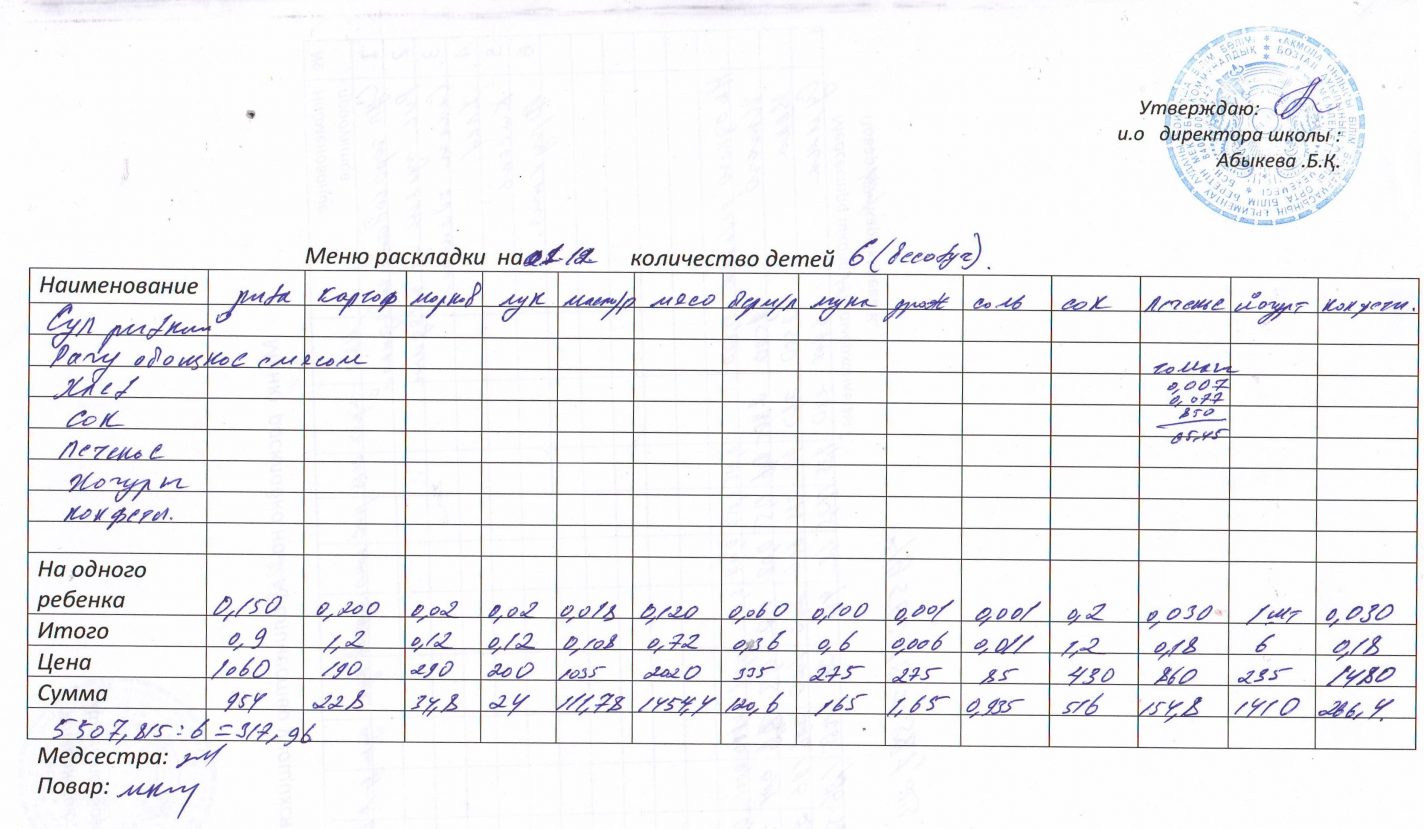 Утверждаю:
и.о директора школы :
Абыкева .Б.Қ.
Меню раскладки на 01 12 количество детей 6 (бесобуч).
Наименование рыба картоф морков лук масло/р мясо верм/л мука дрож соль сок печенье йогурт конфеты.
Суп рыбный
Рагу овощное с мясом
томат
Хлеб 0,007
0,077
Сок 850
65,45
Печенье
Йогурт
Конфеты.
На одного
ребенка 0,150 0,200 0,02 0,02 0,018 0,120 0,060 0,100 0,001 0,001 0,2 0,030 1 шт 0,030
Итого 0,9 1,2 0,12 0,12 0,108 0,72 0,36 0,6 0,006 0,011 1,2 0,18 6 0,18
Цена 1060 190 290 200 1035 2020 335 275 275 85 430 860 235 1480
Сумма 954 228 34,8 24 111,78 1454,4 120,6 165 1,65 0,935 516 154,8 1410 266,4.
5507,815 : 6 = 917,96
Медсестра:
Повар: